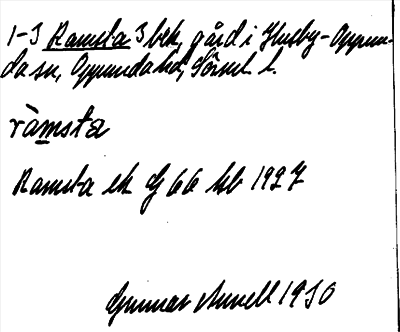 1-3 Ramsta 3 bek, gård i Husby-Oppun-
da sn, Oppunda hd, Sörml l.
ràmsta
Ramsta ek 66 hb 1927
Gunnar 1930